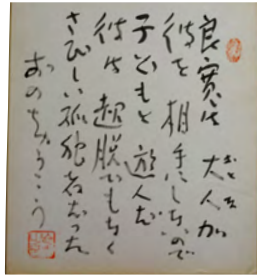 良寛は 大人が
おとな
彼を 相手にしないので
子どもと 遊んだ
彼は 超脱でもなく
さびしい孤独者だった
おのちゅうこう